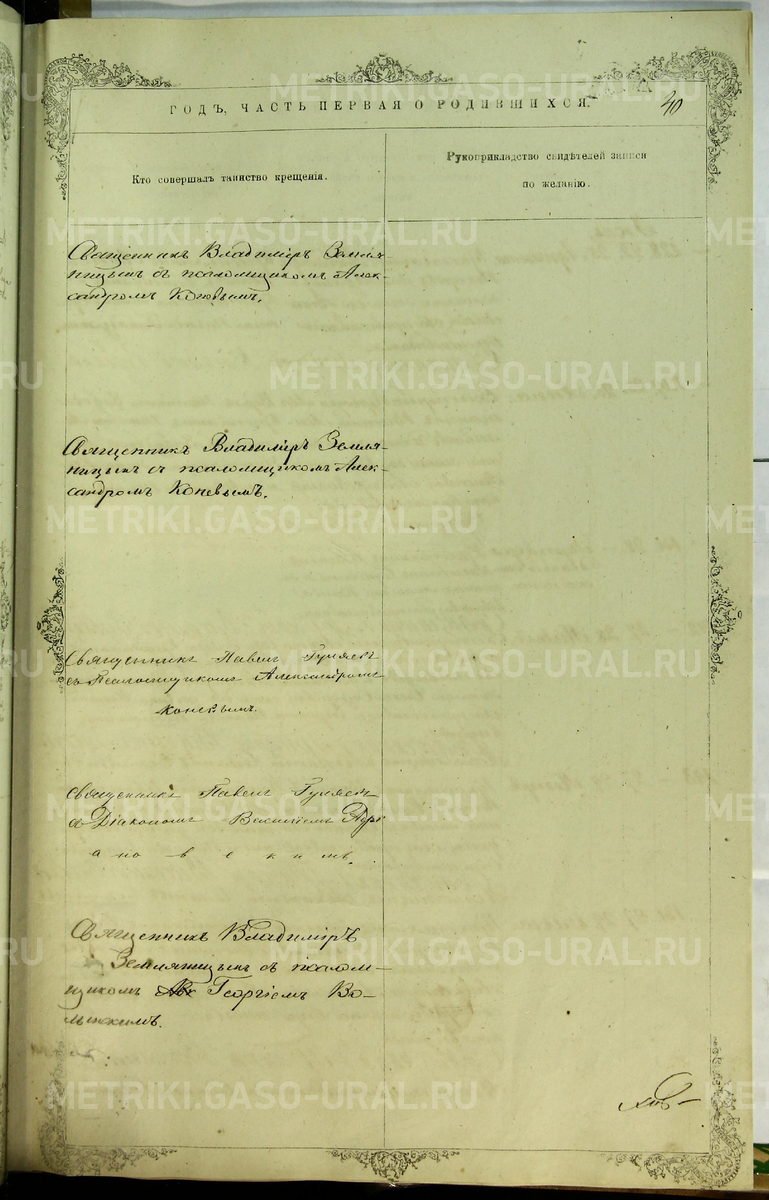 ГОДЪ, ЧАСТЬ ПЕРВАЯ О РОДИВШИХСЯ.
40
Кто совершалъ таинство крещенія.
Рукоприкладство свидѣтелей записи
по желанію.
Священникъ Владиміръ Земля-
ницынъ съ псаломщикомъ Алек-
сандромъ Коневымъ.
Священникъ Владиміръ Земля-
ницынъ съ псаломщикомъ Алек-
сандромъ Коневымъ.
Священникъ Павелъ Гуляевъ
съ Псаломщикомъ Александромъ
Коневымъ.
Священникъ Павелъ Гуляевъ
съ Діакономъ Василіемъ
ановскимъ.
Священникъ Владиміръ
Земляницынъ съ псалом-
щикомъ Георгіемъ Во-
лынскимъ.
METRIKI.GASO-URAL.RU